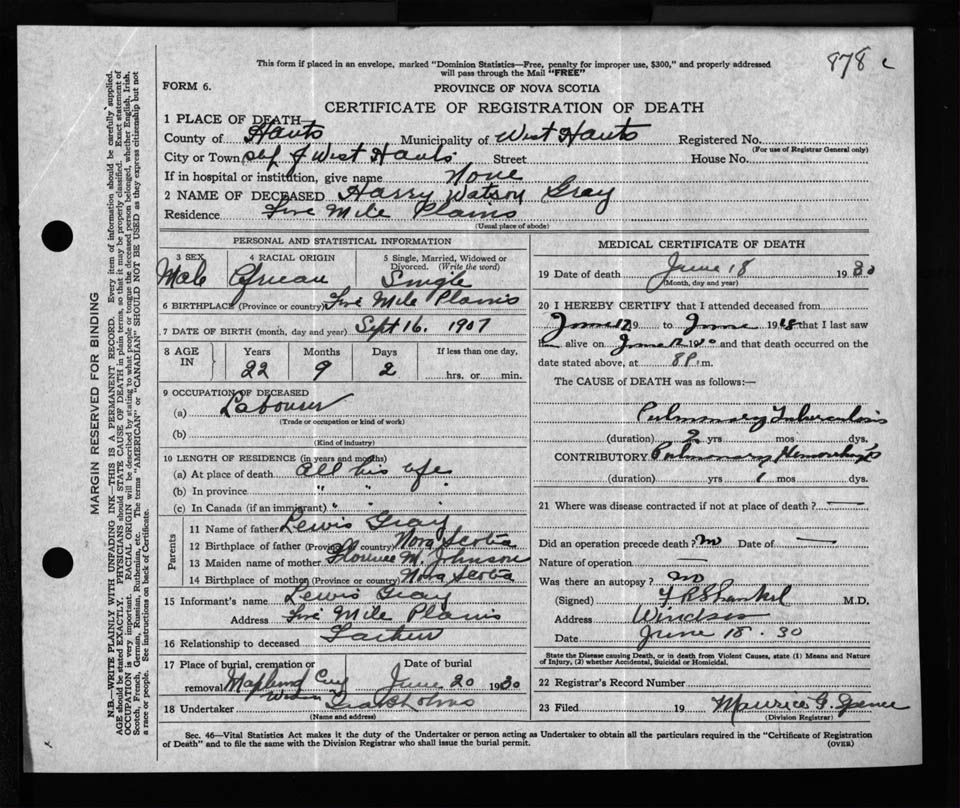 878 c
This form if placed in an envelope, marked "Dominion Statistics—Free, penalty for improper use, $300," and properly addressed
will pass through the Mail "FREE"
FORM 6.
PROVINCE OF NOVA SCOTIA
CERTIFICATE OF REGISTRATION OF DEATH
1 PLACE OF DEATH—
County of Hants Municipality of West Hants Registered No.
(For use of Registrar General only)
City or Town of West Hants Street House No.
If in hospital or institution, give name None
2 NAME OF DECEASED Harry Watson Gray
Residence Five Mile Plains
(Usual place of abode)
PERSONAL AND STATISTICAL INFORMATION
3 SEX 4 RACIAL ORIGIN 5 Single, Married, Widowed or
Divorced. (Write the word)
Male African Single
6 BIRTHPLACE (Province or country) Five Mile Plains
7 DATE OF BIRTH (month, day and year) Sept 16. 1907
8 AGE IN Years Months Days If less than one day,
22 9 2 hrs. or min.
9 OCCUPATION OF DECEASED
(a) Labourer
(Trade or occupation or kind of work)
(b)
(Kind of industry)
10 LENGTH OF RESIDENCE (in years and months)
(a) At place of death All his life
(b) In province " " "
(c) In Canada (if an immigrant) " " "
Parents
11 Name of father Lewis Gray
12 Birthplace of father (Province or country) Nova Scotia
13 Maiden name of mother Florence M. Johnson
14 Birthplace of mother (Province or country) Nova Scotia
15 Informant's name Lewis Gray
Address Five Mile Plains
16 Relationship to deceased Father
17 Place of burial, cremation or removal Date of burial
June 20 1930
18 Undertaker
(Name and address)
MEDICAL CERTIFICATE OF DEATH
19 Date of death June 18 1930
(Month, day and year)
20 I HEREBY CERTIFY that I attended deceased from
June 19 to June 19 that I last saw
alive on June and that death occurred on the
date stated above, at 8 P. m.
The CAUSE of DEATH was as follows:
Pulmonary Tuberculosis
(duration) 2 yrs mos dys.
CONTRIBUTORY Pulmonary Hemorrhages
(duration) yrs 1 mos dys.
21 Where was disease contracted if not at place of death? —
Did an operation precede death? no Date of —
Nature of operation —
Was there an autopsy? no
(Signed) M.D.
Address Windsor
Date June 18 - 30
State the Disease causing Death, or in death from Violent Causes, state (1) Means and Nature
of Injury, (2) whether Accidental, Suicidal or Homicidal.
22 Registrar's Record Number
23 Filed 19 Maurice G.
(Division Registrar)
Sec. 46—Vital Statistics Act makes it the duty of the Undertaker or person acting as Undertaker to obtain all the particulars required in the "Certificate of Registration
of Death" and to file the same with the Division Registrar who shall issue the burial permit.
(OVER)
MARGIN RESERVED FOR BINDING
N.B.—WRITE PLAINLY WITH UNFADING INK—THIS IS A PERMANENT RECORD. Every item of information should be carefully supplied.
AGE should be stated EXACTLY. PHYSICIANS should STATE CAUSE OF DEATH in plain terms, so that it may be properly classified. Exact statement of
OCCUPATION is very important. RACIAL ORIGIN will be described by stating to what people or tongue the deceased person belonged, whether English, Irish,
Scotch, French, German, Russian, Ruthenian, etc. The terms "AMERICAN" or "CANADIAN" SHOULD NOT BE USED as they express citizenship but not
a race or people. See instructions on back of Certificate.